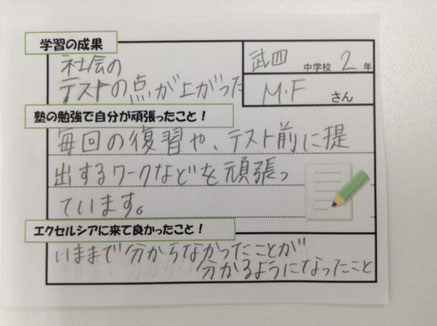 学習の成果
社会の
テストの点が上がった
武四 中学校 2 年
M・F さん
塾の勉強で自分が頑張ったこと！
毎回の復習や、テスト前に提
出するワークなどを頑張っ
ています。
エクセルシアに来て良かったこと！
いままで分からなかったことが
分かるようになったこと